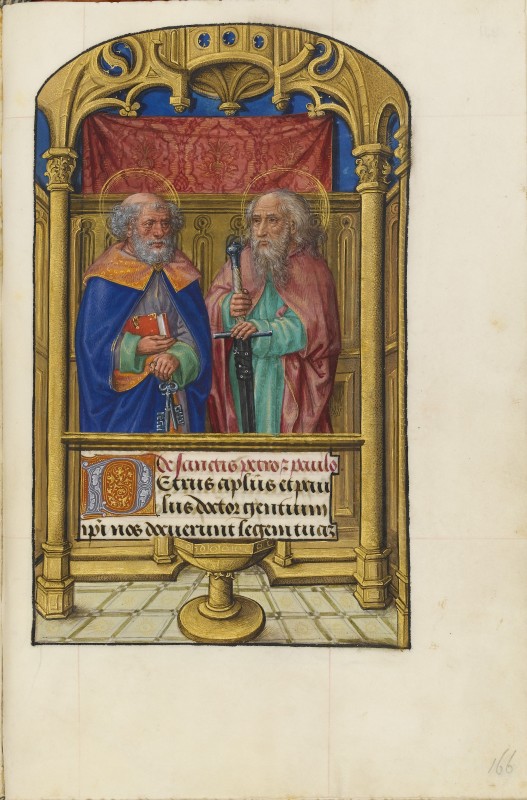 De sanctis petro ⁊ paulo
Petrus apl̄us et pau
lus doctor gentium
ip̄i nos docuerunt legem tuaꝫ
166